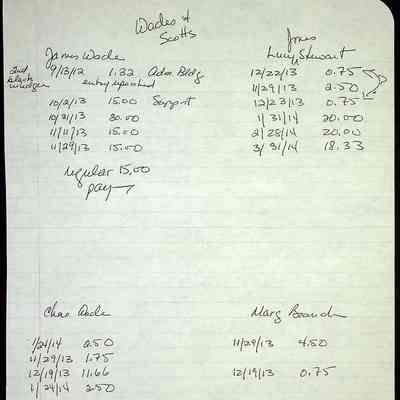 Wades &
Scotts
James Wade
2nd
black
ledger
9/13/12 1.32 Adm. Bldg
entry up
10/2/13 15.00 Support
10/21/13 30.00
11/11/13 15.00
11/29/13 15.00
regular 15.00
pay
Jones
Lucy Stewart
12/22/13 0.75
11/29/13 2.50
12/23/13 0.75
1/31/14 20.00
2/28/14 20.00
3/31/14 18.33
Chas Wade
1/21/14 2.50
11/29/13 1.75
12/19/13 11.66
1/24/14 2.50
Marg
11/29/13 4.50
12/19/13 0.75